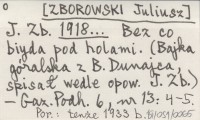 [ZBOROWSKI Juliusz]
J. Zb. 1918... Bez co
biyda pod holami. (Bajka
góralska z B. Dunajca
spisał wedle opow. J. Zb.)
– Gaz. Podh. 6, nr 13: 4-5.
Por.: tenże 1933 b.